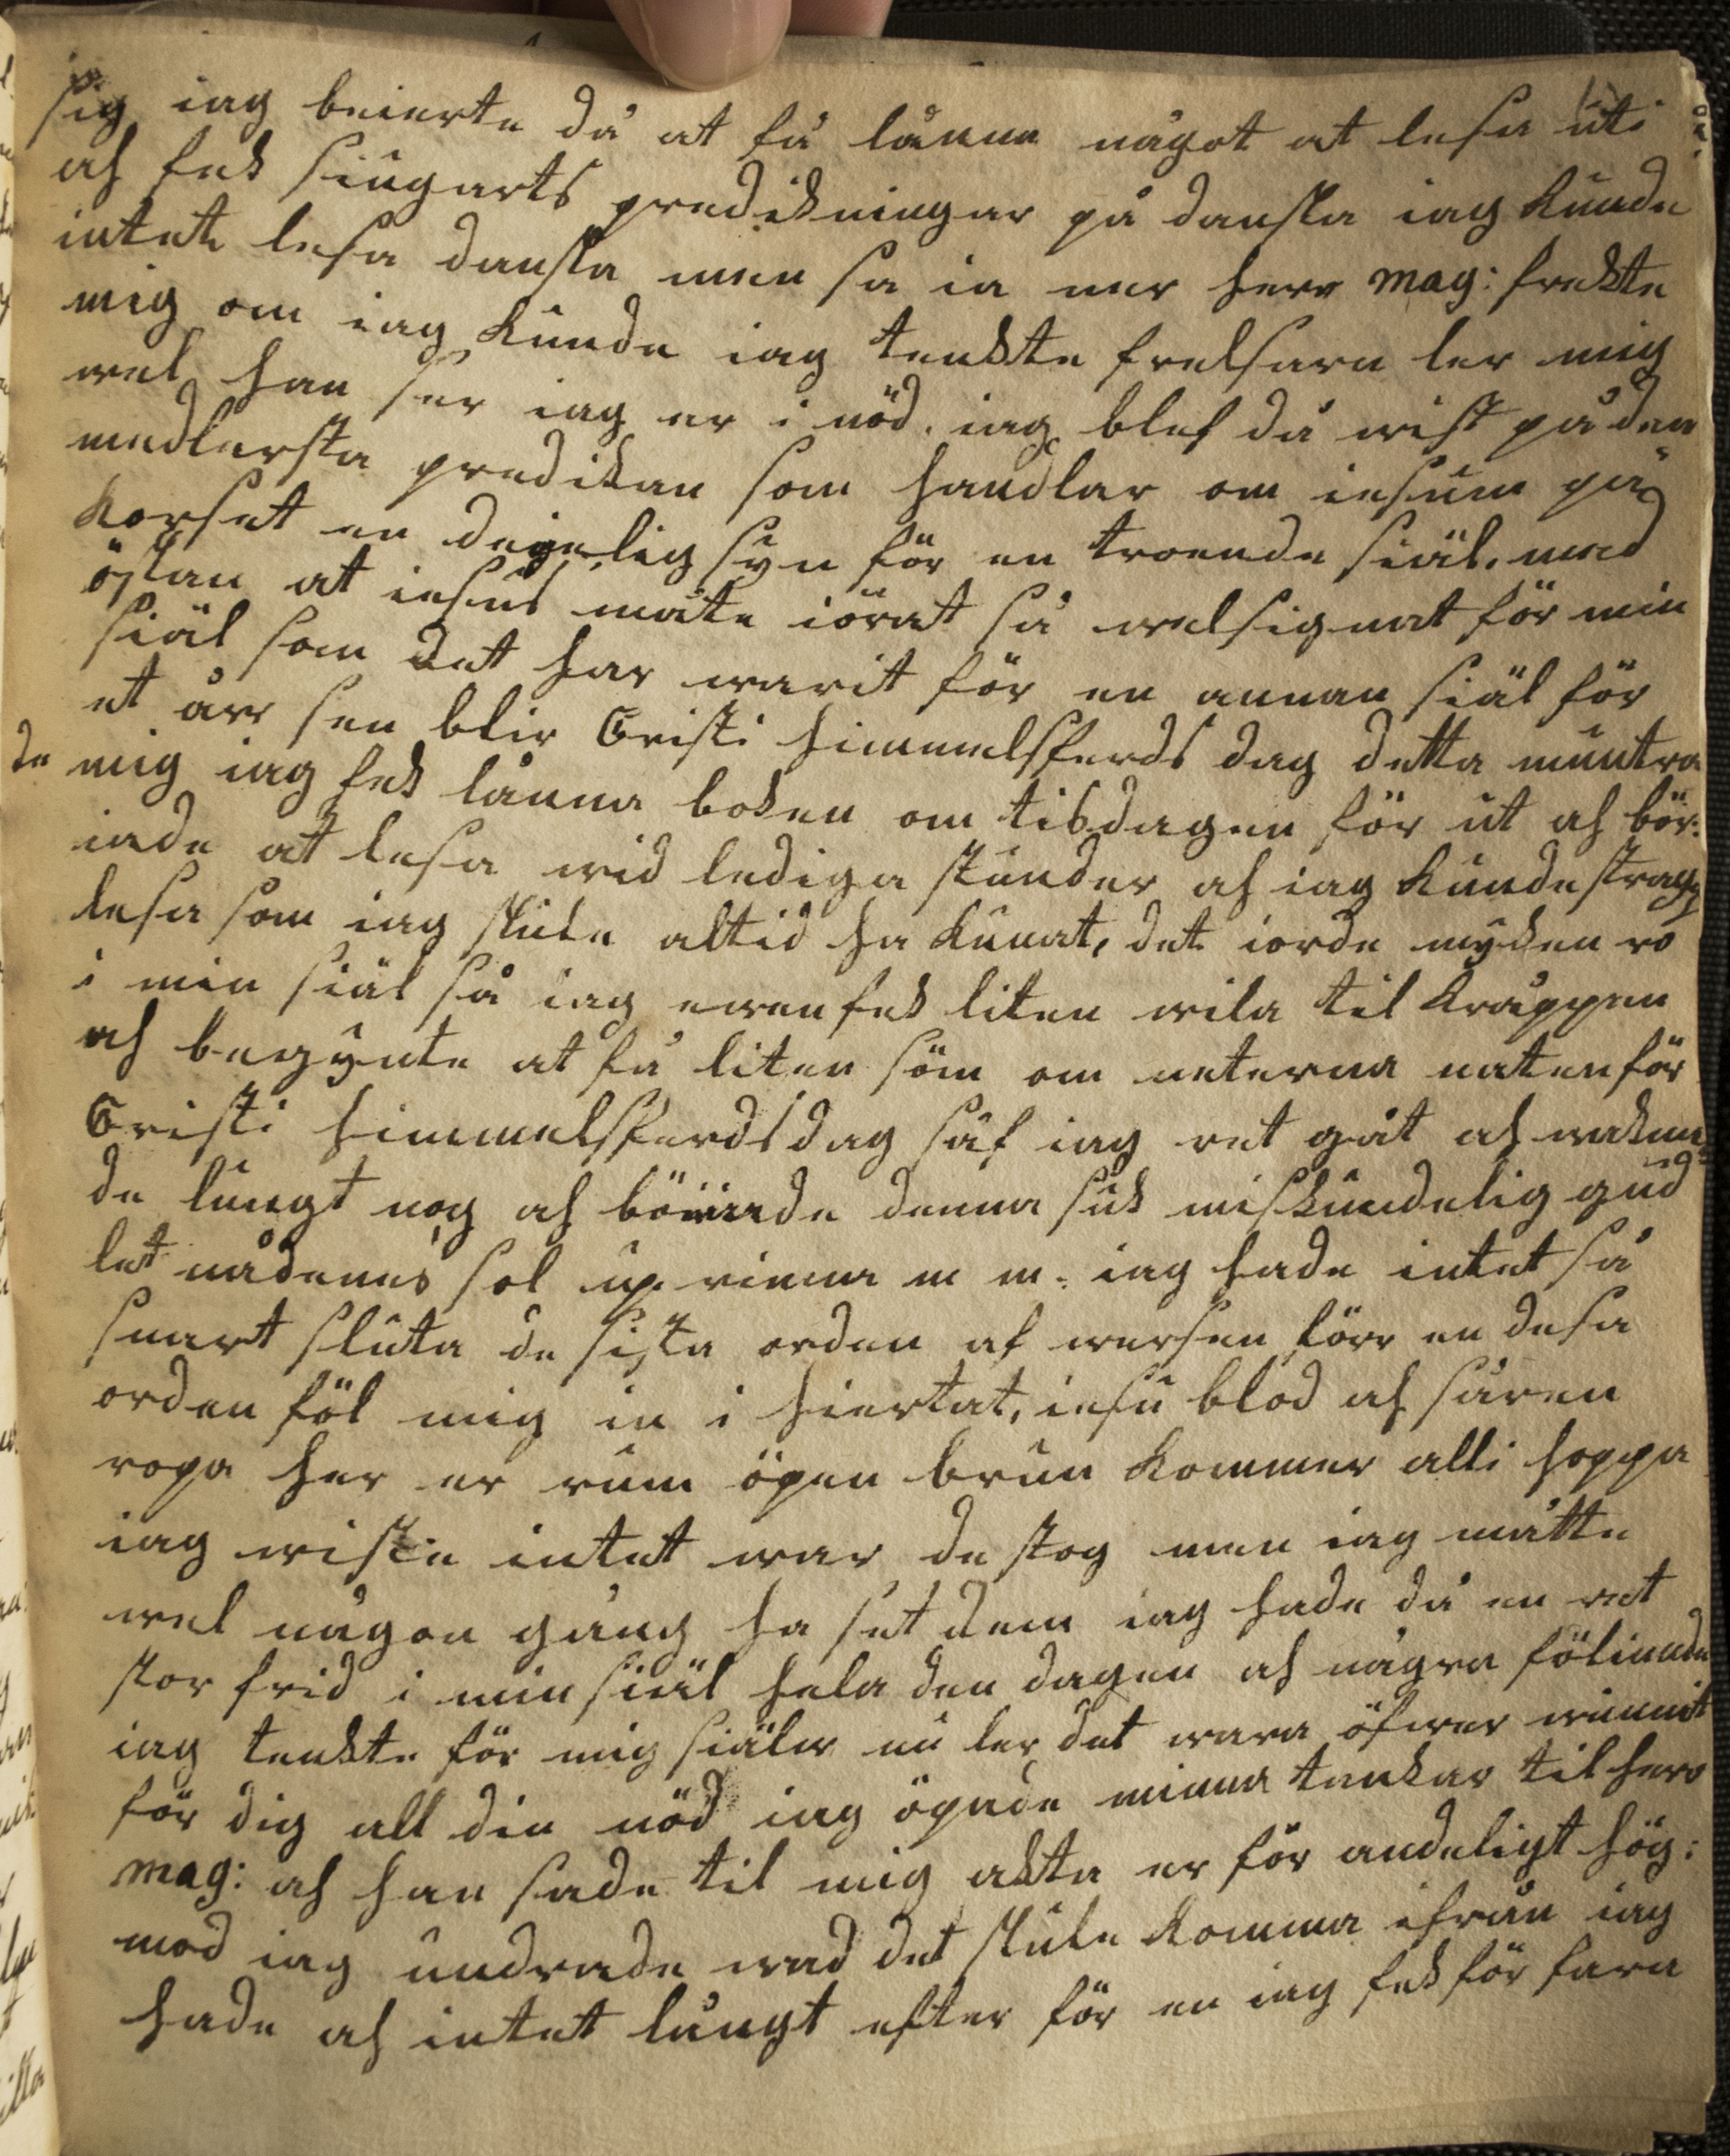 sig iag beierte då at få låna något at lesa uti
ah fek siugarts predikningar på danska iag kunde
intet lesa danska men sa ia ner herr mag: frekte
mig om iag kunde iag tenkte frelsaren ler mig
wel han ser iag er i nöd. iag blef då wist på den
medlersta predikan som handlar om iesum på
korset en deigelig syn för en troende siäl. med
östan at iesus måte iörat så welsignat för min
siäl som det har warit för en annan siäl för
et årr sen blir Cristi himmelsferds dag detta muntra
de mig iag fek låna boken om tisdagen för ut ah bör:
iade at lesa wid lediga stunder ah iag kunde strax
lesa som iag skule altid ha kunat, det iorde myken ro
i min siäl så iag ewen fek liten wila til kråppen
ah begynte at få liten söm om neterna naten för
Cristi himmelsferdsdag såf iag ret gåt ah wakna
de lungt nog ah böriade denna suk miskundelig gud
let nådenes sol up rinna m m. iag hade intet så
snart sluta de sista orden af wersen förr en desa
orden föl mig in i hiertat, iesu blod ah såren
ropa her er rum öpen brun kommer alli hoppa
iag wiste intet war de stog men iag måtte
wel någon gång ha set dem iag hade då en ret
stor frid i min siäl hela den dagen ah några föliande
iag tenkte för mig siälw nu ler det wara öfwer wunnit
för dig all din nöd iag öpnade minna tankar til herr
mag: ah han sade til mig akta er för andeligt hög:
mod iag undrade wad det skule komma ifrån iag
hade ah intet lungt efter för en iag fek för fara